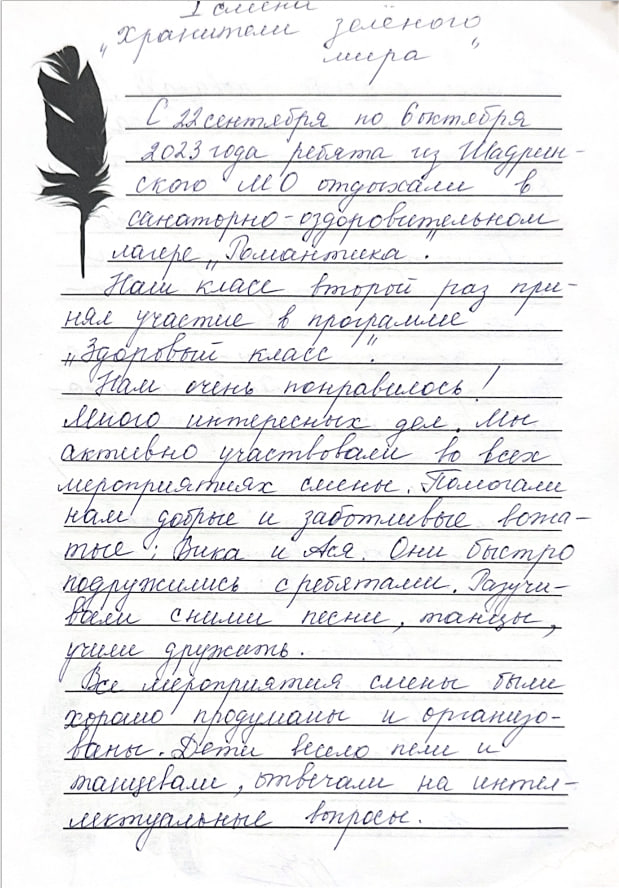 I смени
„Хранители зелёного
мира"
С 22 сентября по 6 октября
2023 года ребята из Шадрин-
ского МО отдыхали в
санаторно-оздоровительном
лагере „Романтика".
Наш класс второй раз при-
нял участие в программе
„Здоровый класс".
Нам очень понравилось!
Много интересных дел. Мы
активно участвовали во всех
мероприятиях смены. Помогали
нам добрые и заботливые вожа-
тые: Вика и Ася. Они быстро
подружились с ребятами. Разучи-
вали с ними песни, танцы,
учили дружить.
Все мероприятия смены были
хорошо продуманы и организо-
ваны. Дети весело пели и
танцевали, отвечали на интел-
лектуальные вопросы.